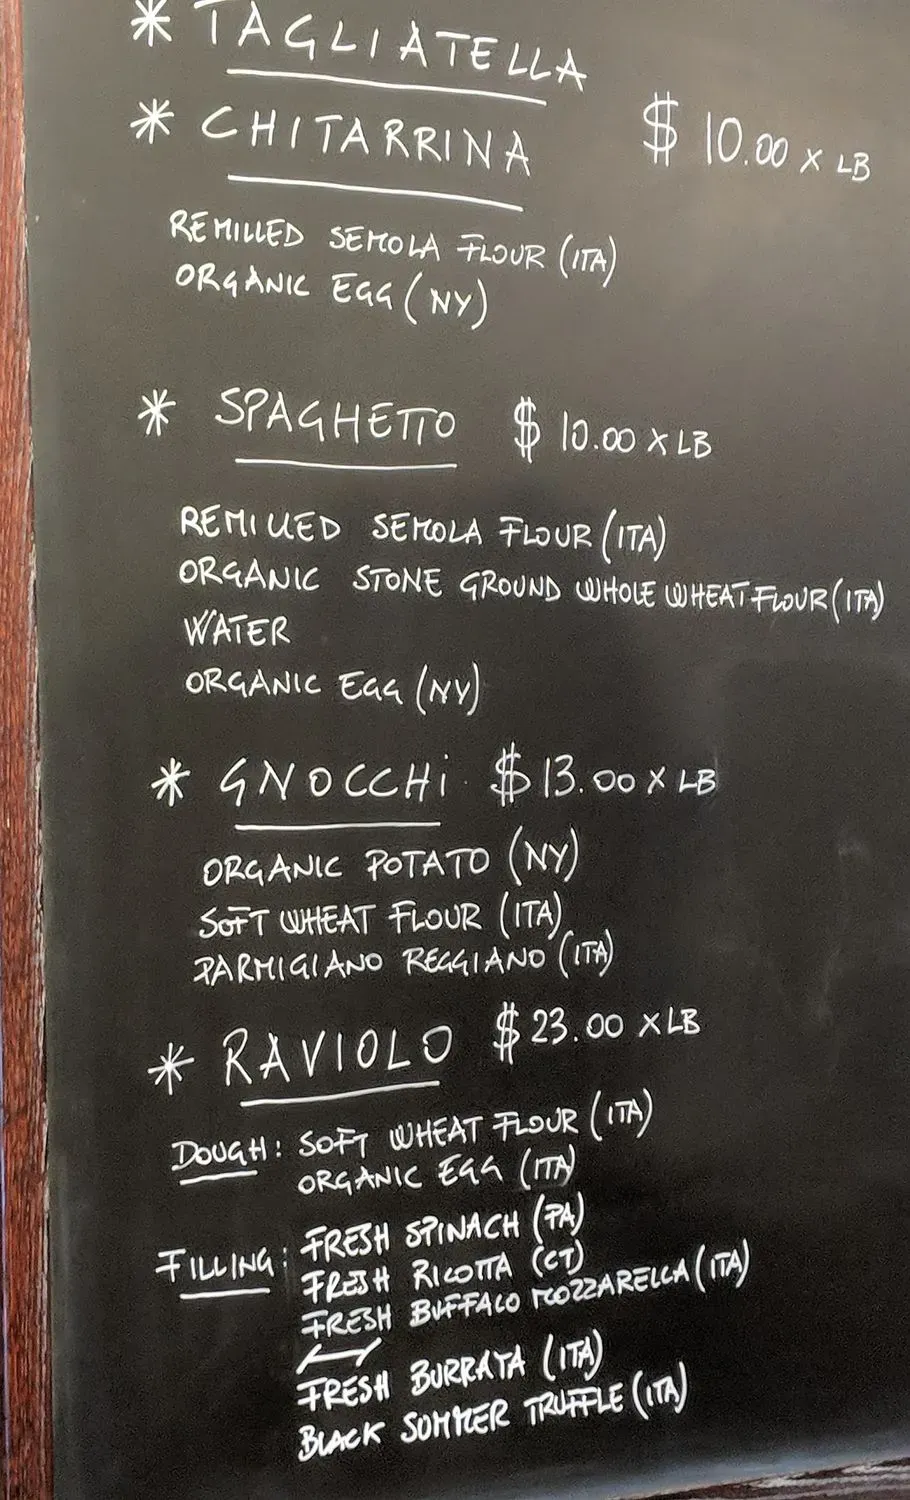 * TAGLIATELLA
* CHITARRINA $ 10.00 X LB
REMILLED SEMOLA FLOUR (ITA)
ORGANIC EGG (NY)
* SPAGHETTO $ 10.00 X LB
REMILLED SEMOLA FLOUR (ITA)
ORGANIC STONE GROUND WHOLE WHEAT FLOUR (ITA)
WATER
ORGANIC EGG (NY)
* GNOCCHi $ 13.00 X LB
ORGANIC POTATO (NY)
SOFT WHEAT FLOUR (ITA)
PARMIGIANO REGGIANO (ITA)
* RAVIOLO $ 23.00 X LB
DOUGH: SOFT WHEAT FLOUR (ITA)
ORGANIC EGG (ITA)
FILLING: FRESH SPINACH (PA)
FRESH RICOTTA (CT)
FRESH BUFFALO MOZZARELLA (ITA)
FRESH BURRATA (ITA)
BLACK SUMMER TRUFFLE (ITA)